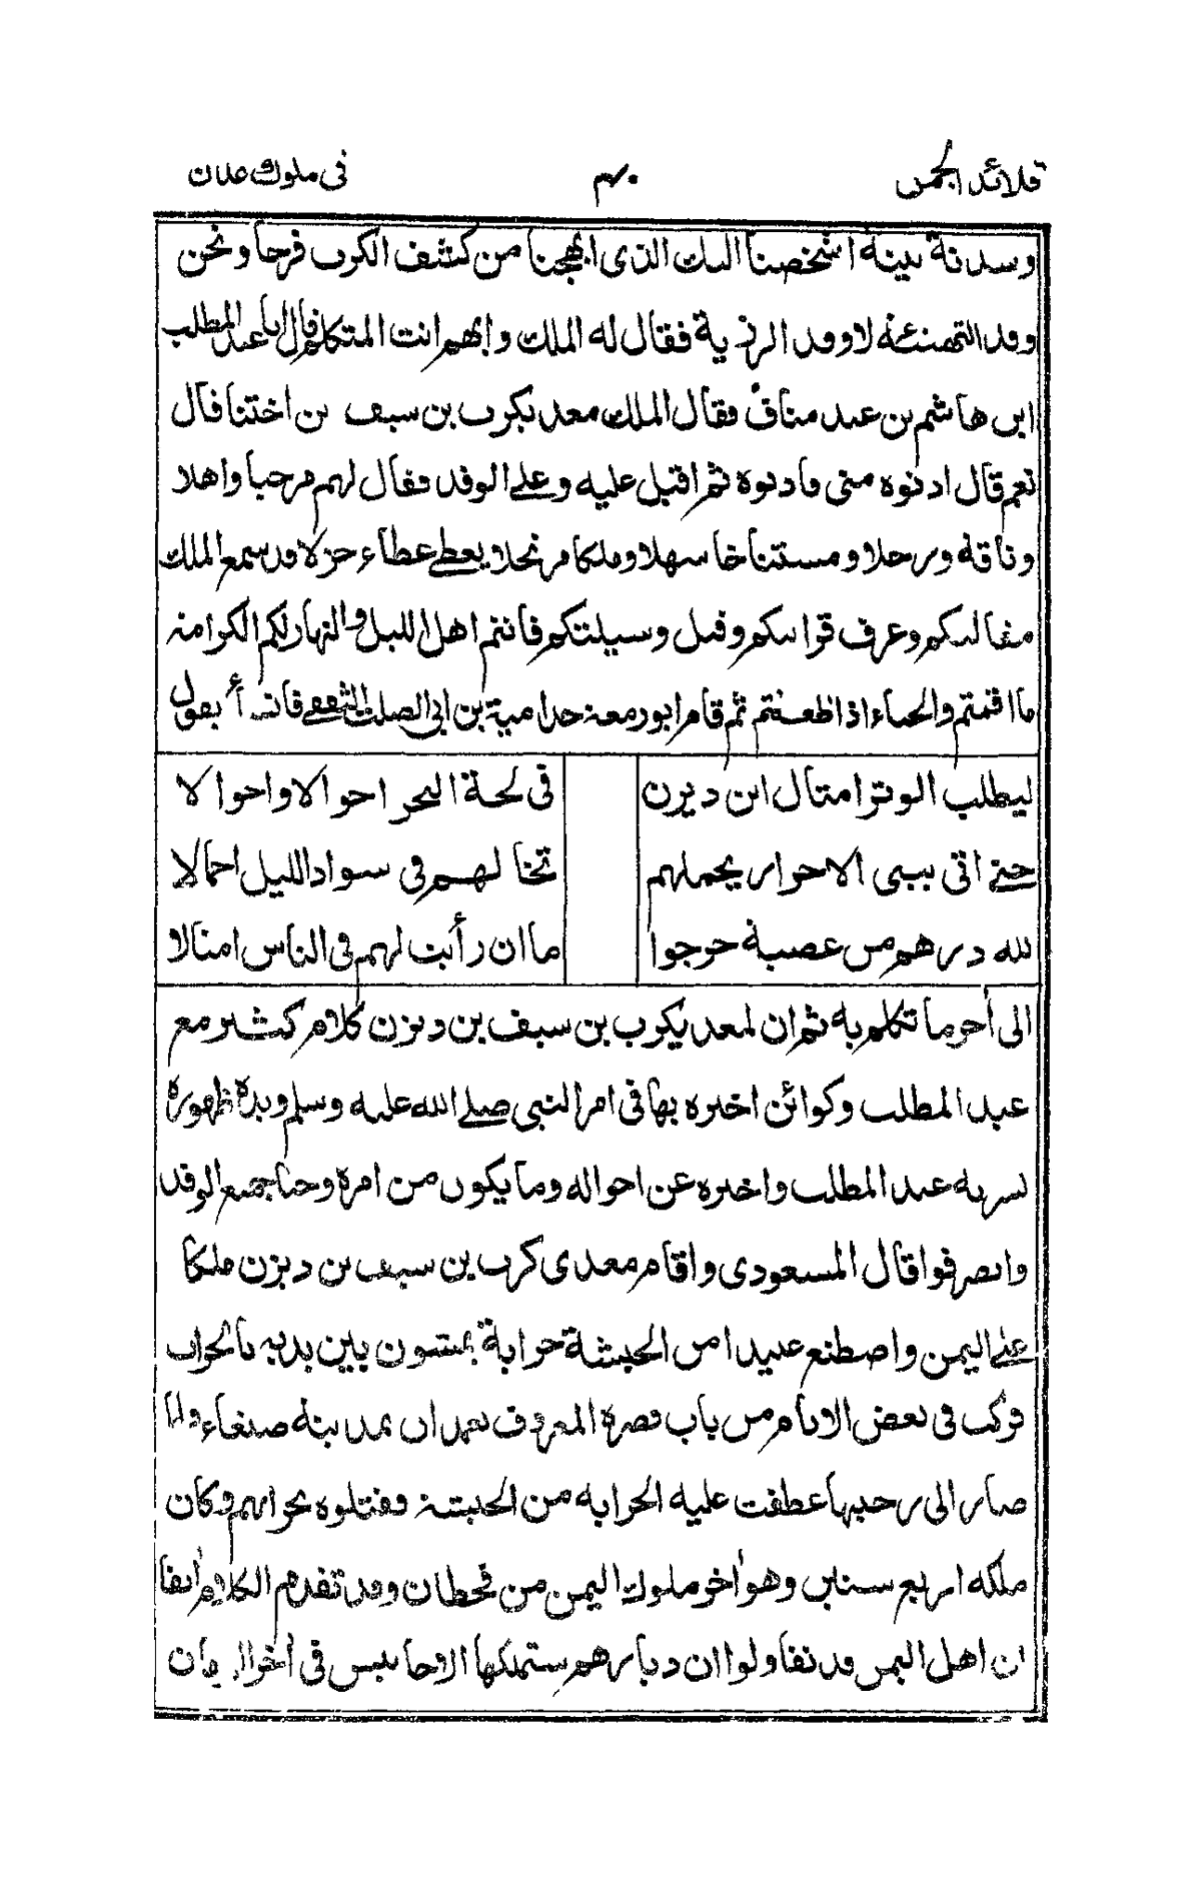 قلائد الجمن
٣٠
في ملوك عدن
وسدنة بيته اشخصنا اليك الذى ابهجنا من كشف الكرب فرحا ونحن
وفد التهنئة لا وفد الرزية فقال له الملك وايهم انت المتكلم قال انا عبد المطلب
ابن هاشم بن عبد مناف فقال الملك معد يكرب بن سيف بن اختنا قال
نعم قال ادنوه منى فادنوه ثم اقبل عليه وعلى الوفد فقال لهم مرحبا واهلا
وناقة ورحلا ومستناخا سهلا وملكا رنحلا يعطى عطاء جزلا قد سمع الملك
مقالتكم وعرف قرابتكم وقبل وسيلتكم فانتم اهل الليل والنهار لكم الكرامة
ما اقمتم والحباء اذا ظعنتم ثم قام ابو زمعة جد امية بن ابى الصلت الثقفى فانشأ يقول
ليطلب الوتر امثال ابن ذيزن
فى لجة البحر احوالا واحوالا
حتى اتى ببنى الاحرار يحملهم
تخالهم فى سواد الليل اجمالا
لله درهم من عصبة خرجوا
ما ان رأيت لهم فى الناس امثالا
الى أخر ما تكلم به ثم ان لمعد يكرب بن سيف بن ذيزن كلام كثير مع
عبد المطلب وكوائن اخبره بها فى امر النبى صلى الله عليه وسلم وبدء ظهوره
بشر به عبد المطلب واخبره عن احواله وما يكون من امره وحبا جميع الوفد
وانصرفوا قال المسعودى واقام معدى كرب بن سيف بن ذيزن ملكا
على اليمن واصطنع عبيدا من الحبشة حرابة يمشون بين يديه بالحراب
فركب فى بعض الايام من باب قصره المعروف بغمدان بمدينة صنعاء ولما
صار الى رحبها عطفت عليه الحرابه من الحبشة فقتلوه بحرابهم وكان
ملكه اربع سنين وهو أخر ملوك اليمن من قحطان وقد تقدم الكلام أنفا
ان اهل اليمن قد تفاولوا ان ديارهم ستملكها الاحابيش فى أخر الزمان